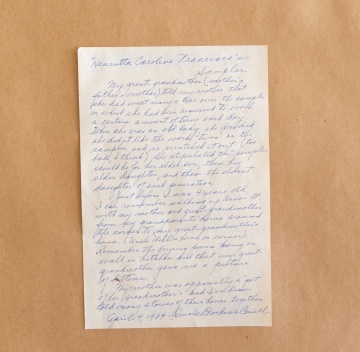 "Henrietta Caroline Francisco's
Sampler
My great grandmother (mother's
father's mother) told my mother that
she had wept many a tear over the sampler
on which she had been required to work
a certain amount of time each day.
When she was an old lady she decided
she didn't like the words " on the
sampler and so scratched it out (too
bad I think). She stipulated the sampler
should be for her eldest son, then his
elder daughter, and then the oldest
daughter of each generation.
Just before I was 4 years old
I can remember walking up
with my mother and great grandmother
from my grandparents home around
the corner to my great grandmother's
home. (Uncle
Remember the frying pans hung on
wall in kitchen and that my great
grandmother gave me a picture
of
My mother was apparently a pet
of her grandmother's and
told me stories of their times together
April 9, 1984